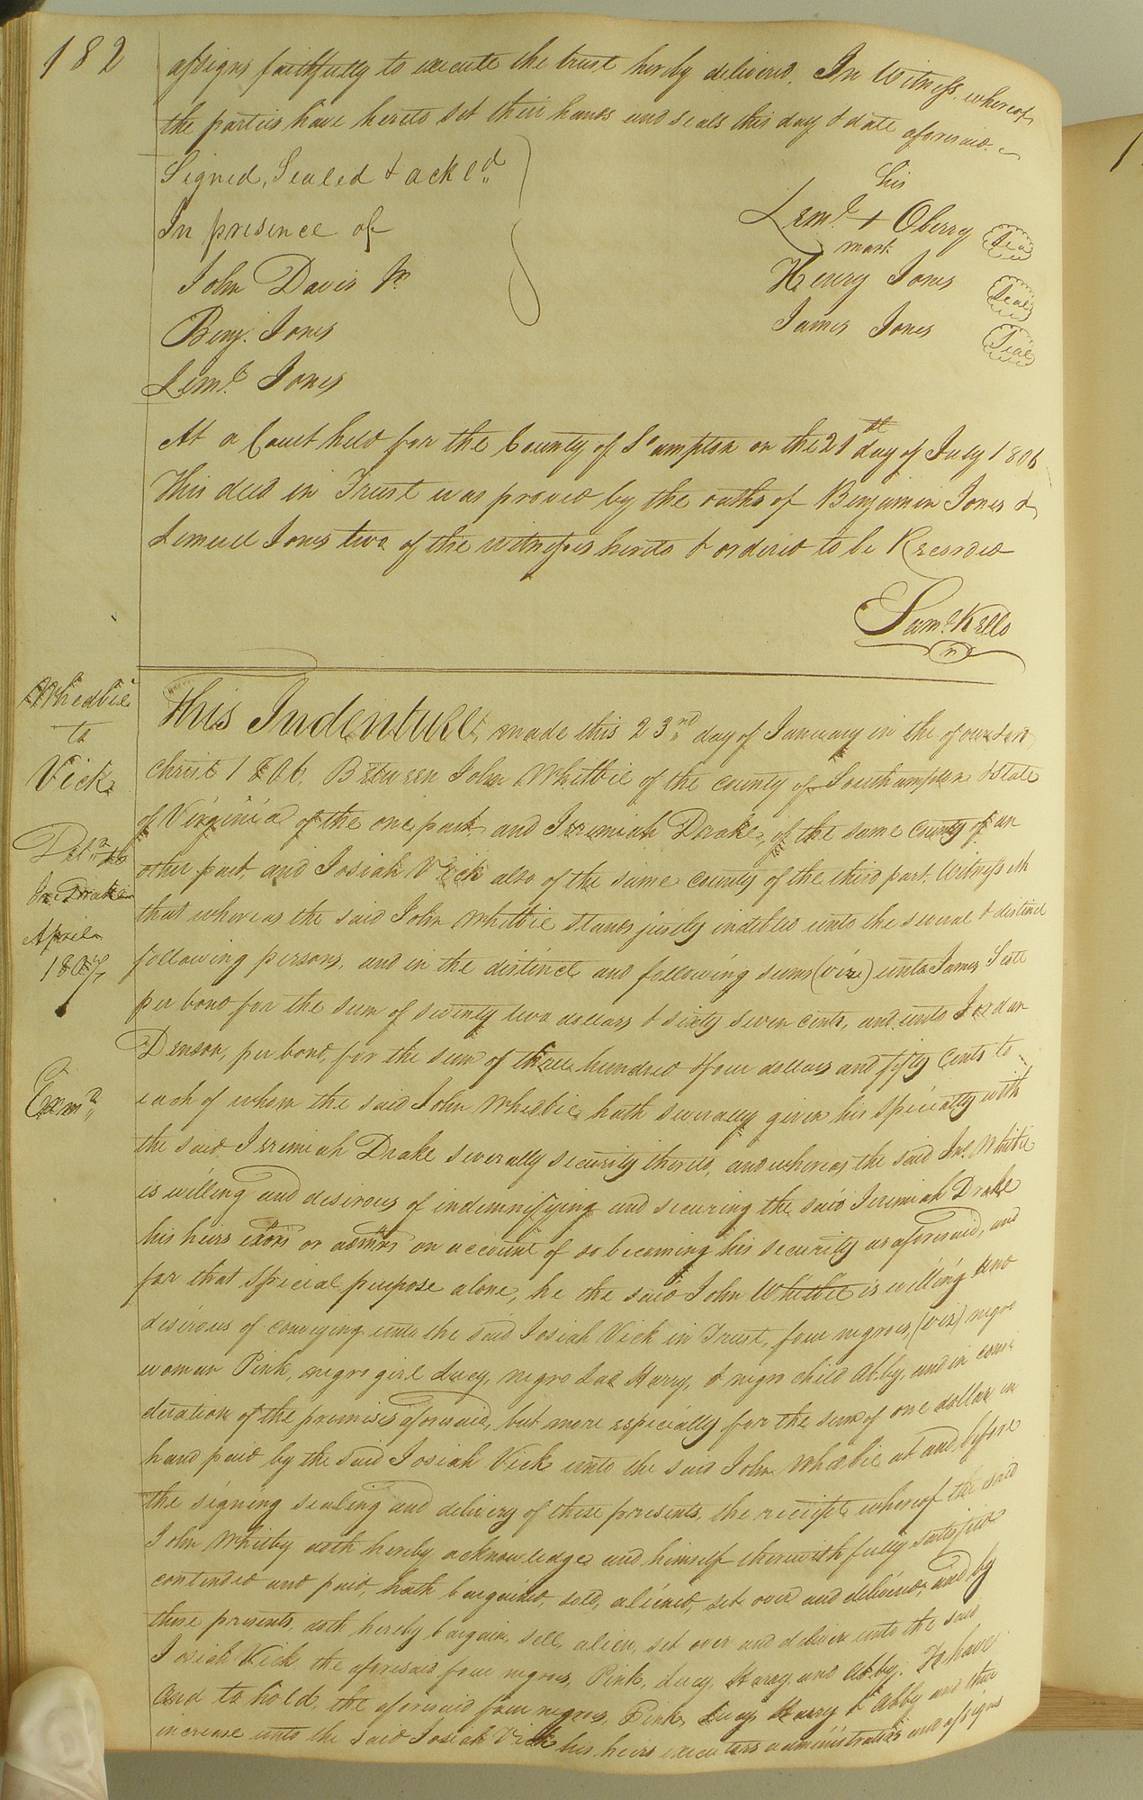 182
assigns faithfully to execute the trust hereby delivered. In Witness whereof
the parties have hereto set their hands and seals this day & date aforesaid.
Signed, Sealed & ackld
In presence of
John Davis Jr.
Benj. Jones
Leml. Jones
his
Leml. + Oberry Seal
mark
Henry Jones Seal
James Jones Seal
At a Court held for the County of Soampton on the 21st day of July 1806
This deed in Trust was proved by the oaths of Benjamin Jones &
Lemuel Jones two of the witnesses hereto & ordered to be Recorded
Saml. Kello
Whedbie
to
Vick
Deld. to
Jere Drake
April
1807
Examd.
This Indenture made this 23rd day of January in the of our Lord
christ 1806 Between John Whitbie of the county of Southampton & State
of Virginia of the one part and Jeremiah Drake, of the same county of an
other part, and Josiah Vick also of the same county of the third part. Witnesseth
that whereas the said John Whitbie stands justly indebted unto the several & distinct
following persons, and in the distinct and following sums (viz) unto James Scott
per bond for the sum of seventy two dollars & sixty seven cents, and unto Jordan
Denson, per bond, for the sum of three hundred & four dollars and fifty Cents to
each of whom the said John Whedbie hath severally given his specialty with
the said Jeremiah Drake severally security thereto, and whereas the said Jno. Whitbie
is willing and desirous of indemnifying and securing the said Jeremiah Drake
his heirs exors or admrs on account of so becoming his security as aforesaid, and
for that special purpose alone, he the said John Whitbie is willing and
desirous of conveying unto the said Josiah Vick in Trust, four negroes, (viz) negro
woman Pink, negro girl Lucy, negro Lad Harry, & negro child Abby, and in consi
deration of the premises aforesaid, but more especially for the sum of one dollar in
hand paid by the said Josiah Vick unto the said John Whedbie at and before
the signing sealing and delivery of these presents, the receipt whereof the said
John Whitby doth hereby acknowledge and himself therewith fully satisfied
contented and paid, hath bargained, sold, aliened, set over and delivered, and by
these presents, doth hereby bargain, sell, alien, set over and deliver unto the said
Josiah Vick, the aforesaid four negroes, Pink, Lucy, Harry and Abby. To have
and to hold, the aforesaid four negroes, Pink, Lucy, Harry & Abby and their
increase unto the said Josiah Vick his heirs executors administrators and assigns